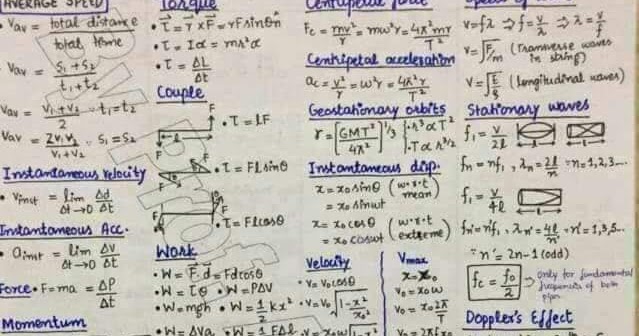 AVERAGE SPEED
• Vav = total distance / total time
Vav = S₁+S₂ / t₁+t₂
Vav = V₁+V₂ / 2 ∵ t₁=t₂
Vav = 2V₁V₂ / V₁+V₂ ∵ S₁=S₂
Instantaneous velocity
• Vinst = lim Δt→0 Δd/Δt
Instantaneous Acc.
• ainst = lim Δt→0 ΔV/Δt
Force • F=ma = ΔP/Δt
Momentum
Torque
• τ = r × F = rF sinθ n̂
• τ = Iα = mr²α
• τ = ΔL/Δt
Couple
F
l
F
• τ = lF
F
F
• τ = Fl sinθ
F
F
• τ = Fl cosθ
Work
• W = F·d = Fd cosθ
• W = τθ • W = PΔV
• W = mgh • W = ½ kx²
• W = ΔVq • W = ½ FΔl
Centripetal force
Fc = mv²/r = mω²r = 4π²mr/T²
Centripetal acceleration
ac = v²/r = ω²r = 4π²r/T²
Geostationary orbits
r = [GMT²/4π²]^1/3 {• r³ ∝ T² • T ∝ r^3/2
Instantaneous disp.
x = x₀ sinθ (w.r.t mean)
= x₀ sinωt
x = x₀ cosθ (w.r.t extreme)
= x₀ cosωt
Velocity
v = v₀ cosθ
v = v₀ √1 - x²/x₀²
Vmax
x = x₀
v₀ = x₀ω
v₀ = x₀ 2π/T
v = fλ ⇒ f = v/λ ⇒ λ = v/f
v = √F/m (Transverse waves in string)
v = √E/ρ (longitudinal waves)
Stationary waves
f₁ = v/2l
fn = nf₁, λn = 2l/n ∵ n=1,2,3...
f₁ = v/4l
fn' = n'f₁, λn' = 4l/n' ∵ n'=1,3,5...
∵ n' = 2n-1 (odd)
fc = f₀/2 → only for fundamental frequencies of both pipes
Doppler's Effect